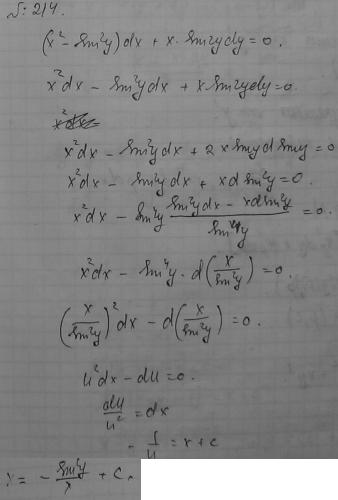 № 214.
(x² - sin²y)dx + x · sin2ydy = 0.
x²dx - sin²ydx + x sin2ydy = 0.
x²dx - sin²ydx + 2x siny d siny = 0
x²dx - sin²ydx + xd sin²y = 0.
x²dx - sin⁴y (sin²ydx - xdsin²y)/(sin⁴y) = 0.
x²dx - sin⁴y · d(x/sin²y) = 0.
(x/sin²y)² dx - d(x/sin²y) = 0.
u²dx - du = 0.
du/u² = dx
- 1/u = x + c
x = - sin²y/x + C.